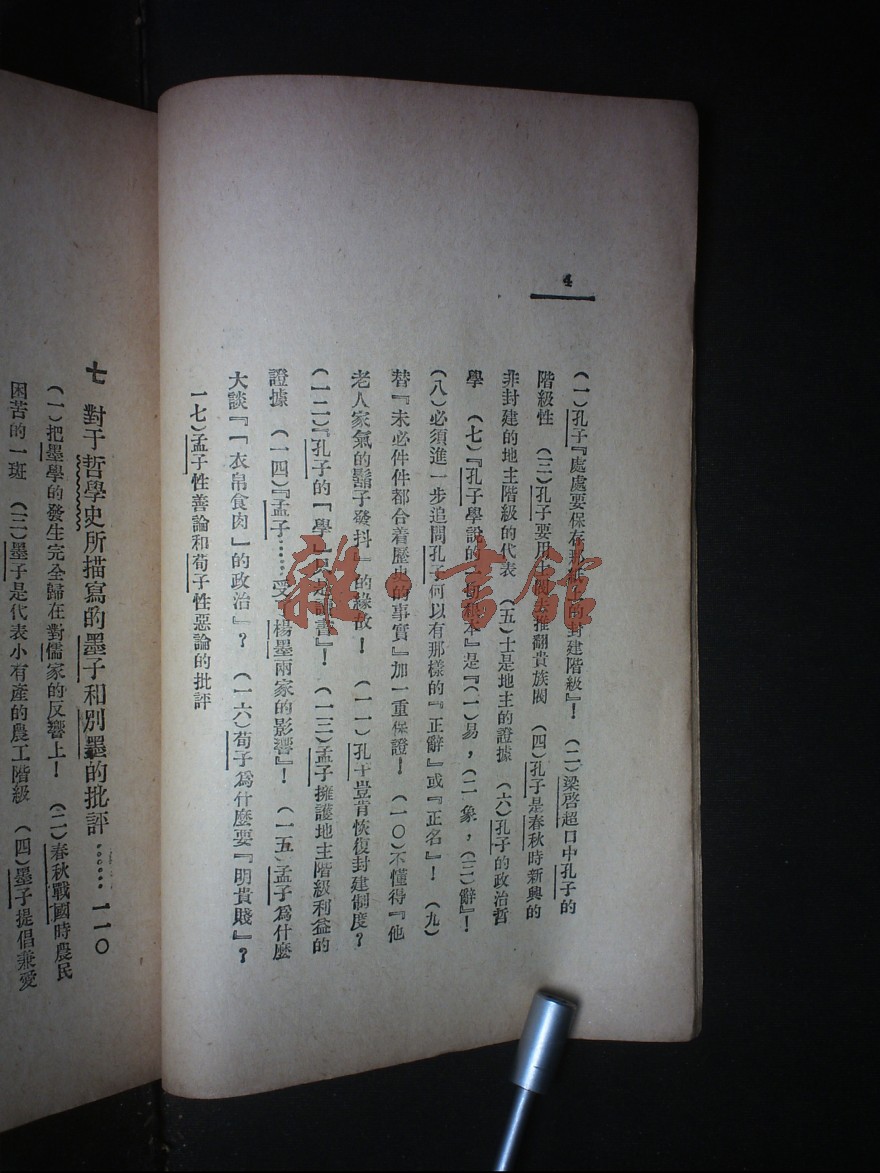 4
(一)孔子『處處要保存那紙上的封建階級』！ (二)梁啓超口中孔子的
階級性 (三)孔子要用士閥去推翻貴族閥 (四)孔子是春秋時新興的
非封建的地主階級的代表 (五)士是地主的證據 (六)孔子的政治哲
學 (七)『孔子學說的一切根本』是『(一)易，(二象，(三)辭』！
(八)必須進一步追問孔子何以有那樣的『正辭』或『正名』！ (九)
替『未必件件都合着歷史的事實』加一重保證！ (一〇)不懂得『他
老人家氣的鬍子發抖』的緣故！ (一一)孔子豈肯恢復封建制度？
(一二)『孔子的「學」只是讀書』！ (一三)孟子擁護地主階級利益的
證據 (一四)『孟子……受楊墨兩家的影響』！ (一五)孟子爲什麼
大談『「衣帛食肉」的政治』？ (一六)荀子爲什麼要『明貴賤』？
一七)孟子性善論和荀子性惡論的批評
七 對于哲學史所描寫的墨子和別墨的批評……一一〇
(一)把墨學的發生完全歸在對儒家的反響上！ (二)春秋戰國時農民
困苦的一斑 (三)墨子是代表小有產的農工階級 (四)墨子提倡兼愛
雜·書館